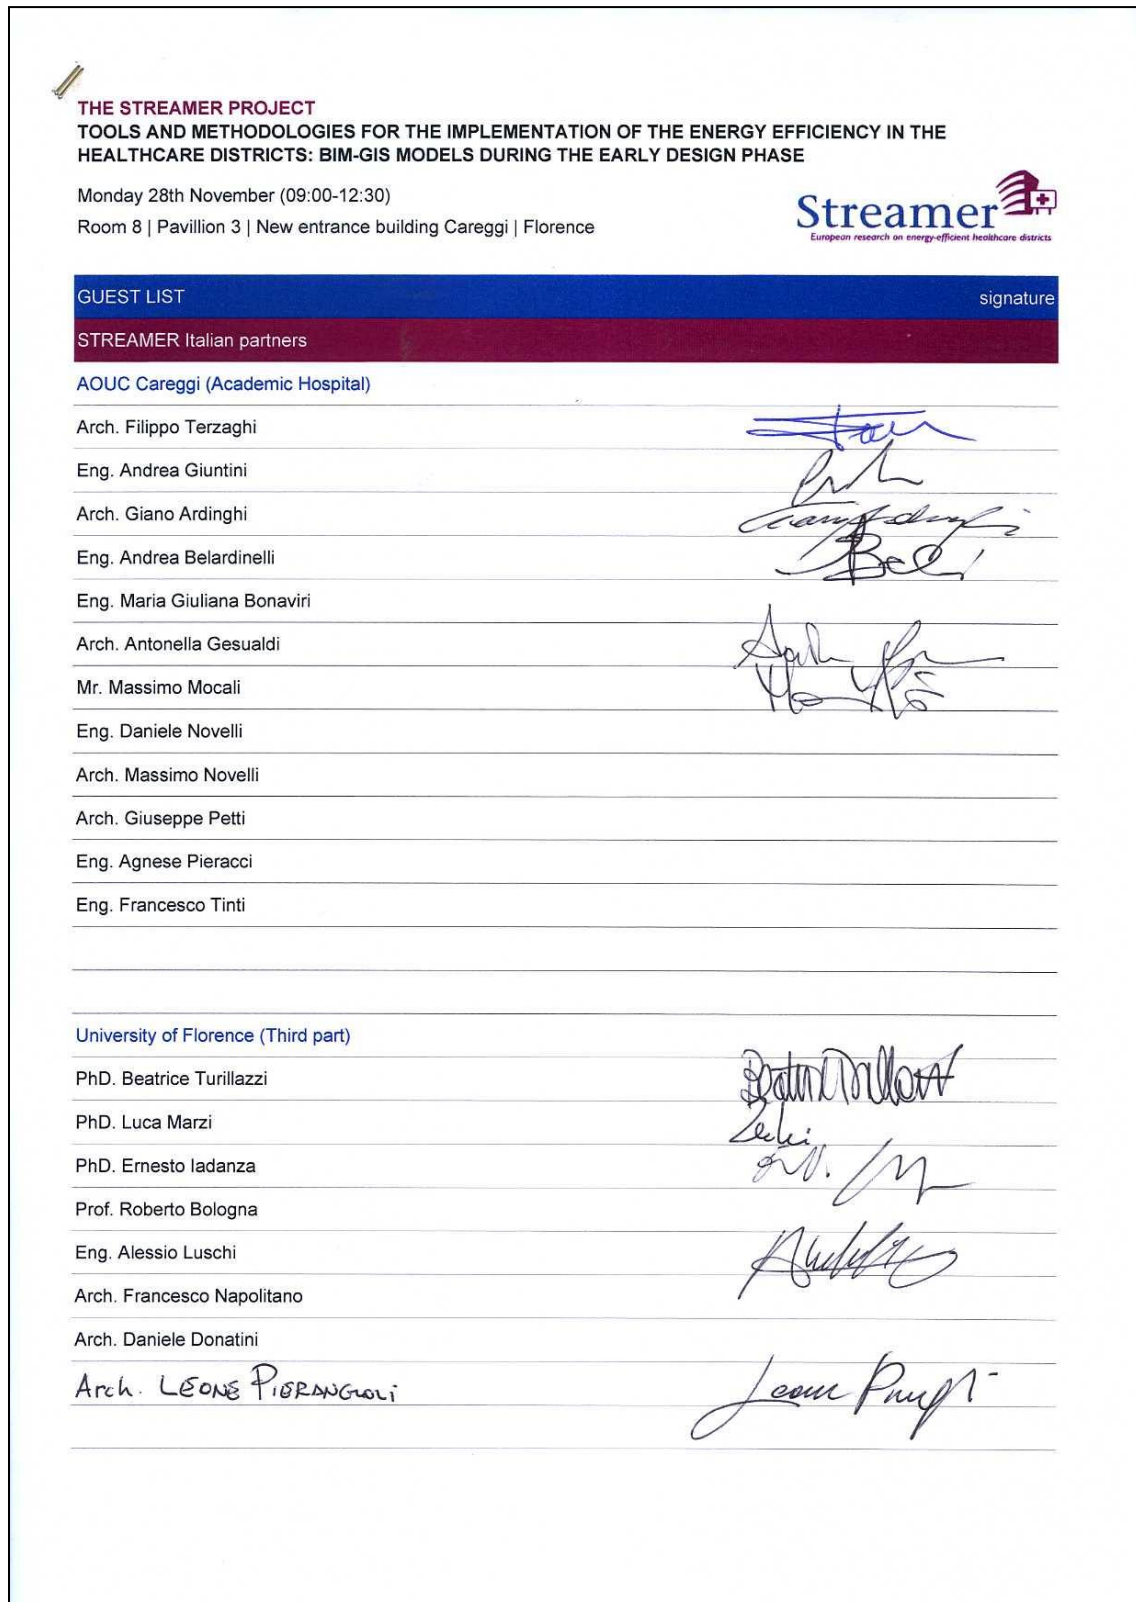 THE STREAMER PROJECT
TOOLS AND METHODOLOGIES FOR THE IMPLEMENTATION OF THE ENERGY EFFICIENCY IN THE
HEALTHCARE DISTRICTS: BIM-GIS MODELS DURING THE EARLY DESIGN PHASE
Monday 28th November (09:00-12:30)
Room 8 | Pavillion 3 | New entrance building Careggi | Florence
Streamer
European research on energy-efficient healthcare districts
GUEST LIST signature
STREAMER Italian partners
AOUC Careggi (Academic Hospital)
Arch. Filippo Terzaghi
Eng. Andrea Giuntini
Arch. Giano Ardinghi
Eng. Andrea Belardinelli
Eng. Maria Giuliana Bonaviri
Arch. Antonella Gesualdi
Mr. Massimo Mocali
Eng. Daniele Novelli
Arch. Massimo Novelli
Arch. Giuseppe Petti
Eng. Agnese Pieracci
Eng. Francesco Tinti
University of Florence (Third part)
PhD. Beatrice Turillazzi
PhD. Luca Marzi
PhD. Ernesto Iadanza
Prof. Roberto Bologna
Eng. Alessio Luschi
Arch. Francesco Napolitano
Arch. Daniele Donatini
Arch. LEONE PIERANGIOLI